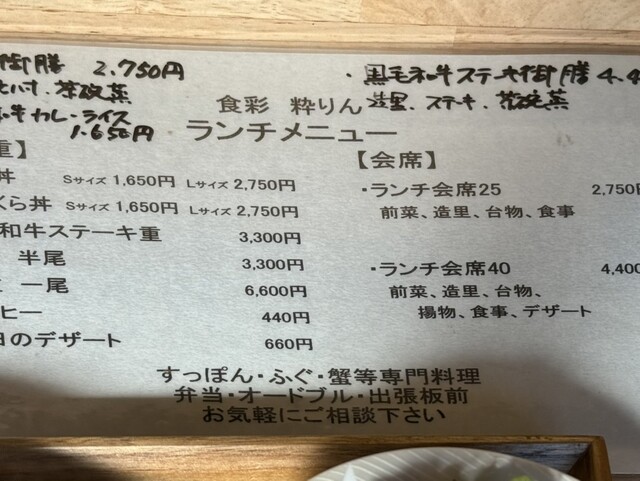 御膳 2.750円
茶碗蒸
牛カレーライス
1.650円
・黒毛和牛ステーキ御膳 4.4
造里.ステーキ.茶碗蒸
食彩 粋りん
ランチメニュー
重】
丼 Sサイズ 1,650円 Lサイズ 2,750円
くら丼 Sサイズ 1,650円 Lサイズ 2,750円
和牛ステーキ重 3,300円
半尾 3,300円
一尾 6,600円
ヒー 440円
日のデザート 660円
【会席】
・ランチ会席25 2,750円
前菜、造里、台物、食事
・ランチ会席40 4,400
前菜、造里、台物、
揚物、食事、デザート
すっぽん・ふぐ・蟹等専門料理
弁当・オードブル・出張板前
お気軽にご相談下さい